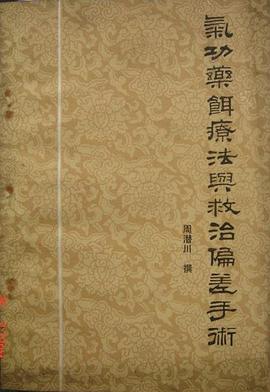 氣功藥餌療法與救治偏差手術
周潛川 撰